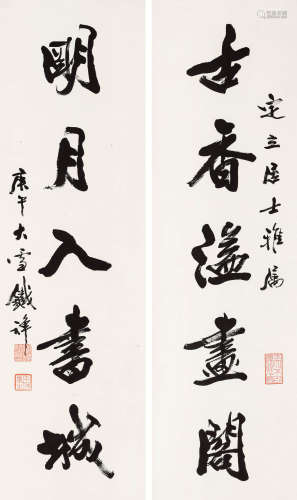 古香溢畫閣
定立居士雅属
明月入書城
庚午大雪鐵